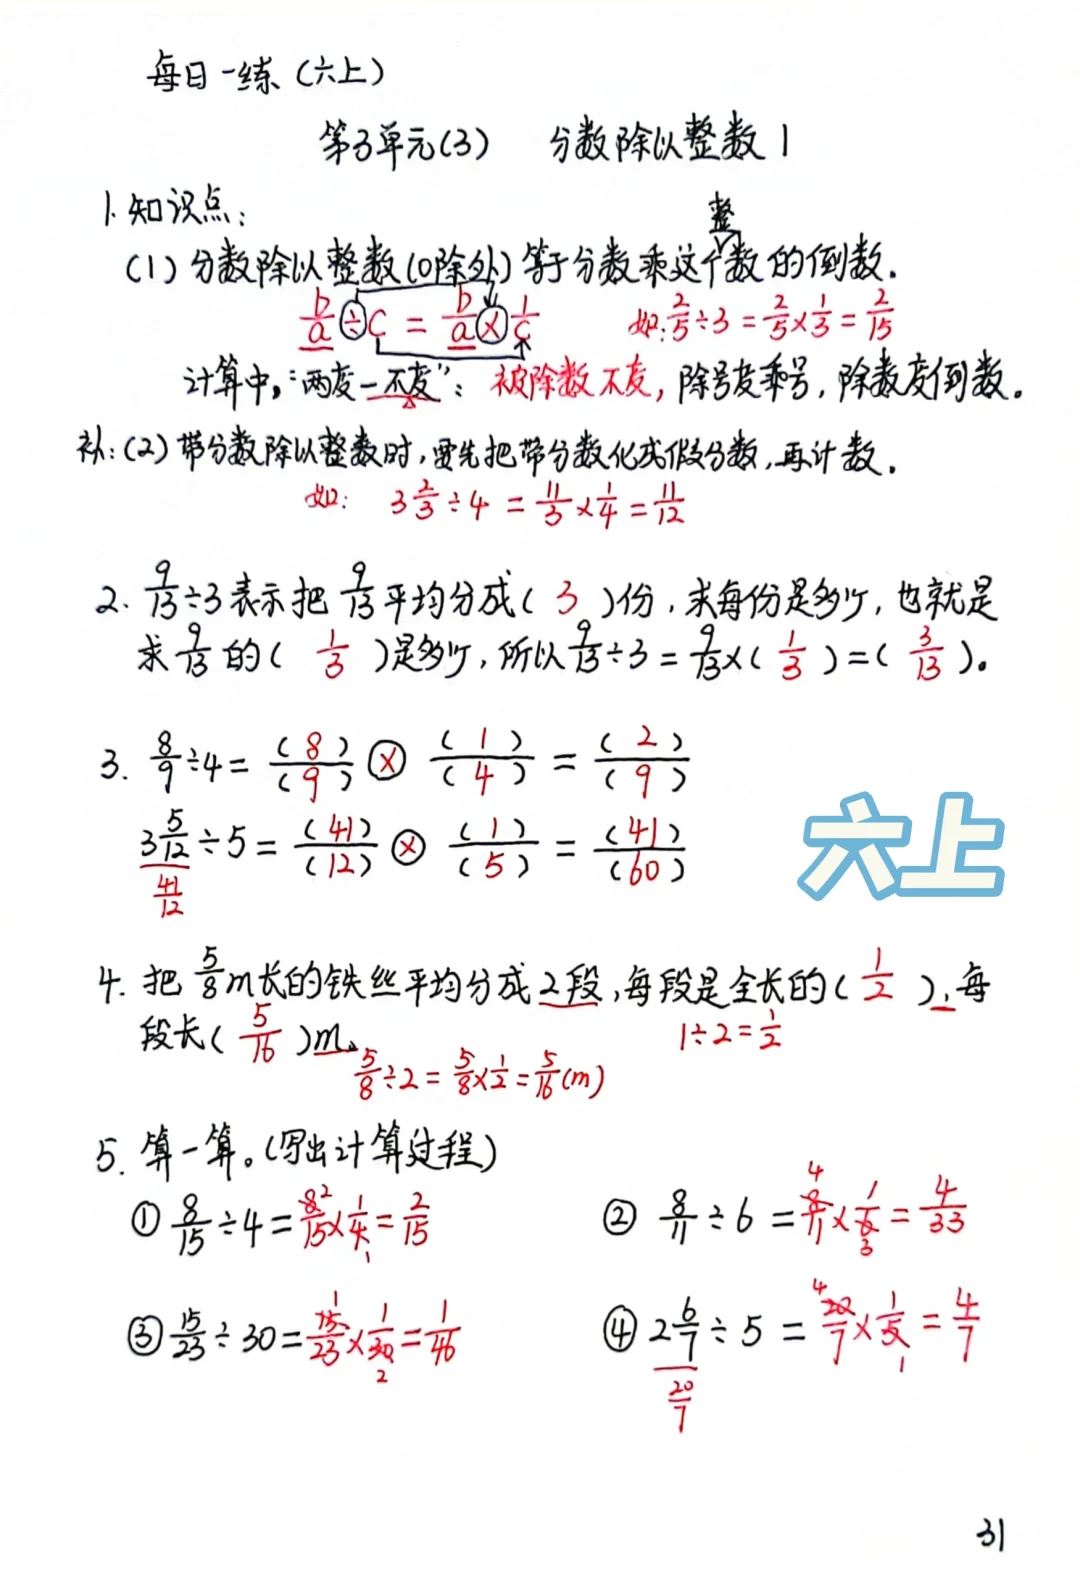 每日一练（六上）
第3单元(3) 分数除以整数1
1.知识点：
整
(1)分数除以整数(0除外)等于分数乘这个数的倒数.
b/a ÷ c = b/a × 1/c 如: 2/5 ÷ 3 = 2/5 × 1/3 = 2/15
计算中，“两变一不变”：被除数不变，除号变乘号，除数变倒数。
补:(2)带分数除以整数时,要先把带分数化成假分数,再计算.
如: 3 2/3 ÷ 4 = 11/3 × 1/4 = 11/12
2. 9/13 ÷ 3表示把 9/13 平均分成( 3 )份,求每份是多少,也就是
求 9/13 的( 1/3 )是多少,所以 9/13 ÷ 3 = 9/13 ×( 1/3 )=( 3/13 )。
3. 8/9 ÷ 4 = (8)/(9) × (1)/(4) = (2)/(9)
3 5/12 ÷ 5 = (41)/(12) × (1)/(5) = (41)/(60)
41/12
六上
4. 把 5/8 m长的铁丝平均分成2段,每段是全长的( 1/2 ),每
段长( 5/16 )m。 1÷2= 1/2
5/8 ÷ 2 = 5/8 × 1/2 = 5/16 (m)
5. 算一算。(写出计算过程)
① 8/15 ÷ 4 = 8/15 × 1/4 = 2/15 2 1
② 8/11 ÷ 6 = 8/11 × 1/6 = 4/33 4 3
③ 15/23 ÷ 30 = 15/23 × 1/30 = 1/46 1 2
④ 2 6/7 ÷ 5 = 20/7 × 1/5 = 4/7 4 1
20/7
31